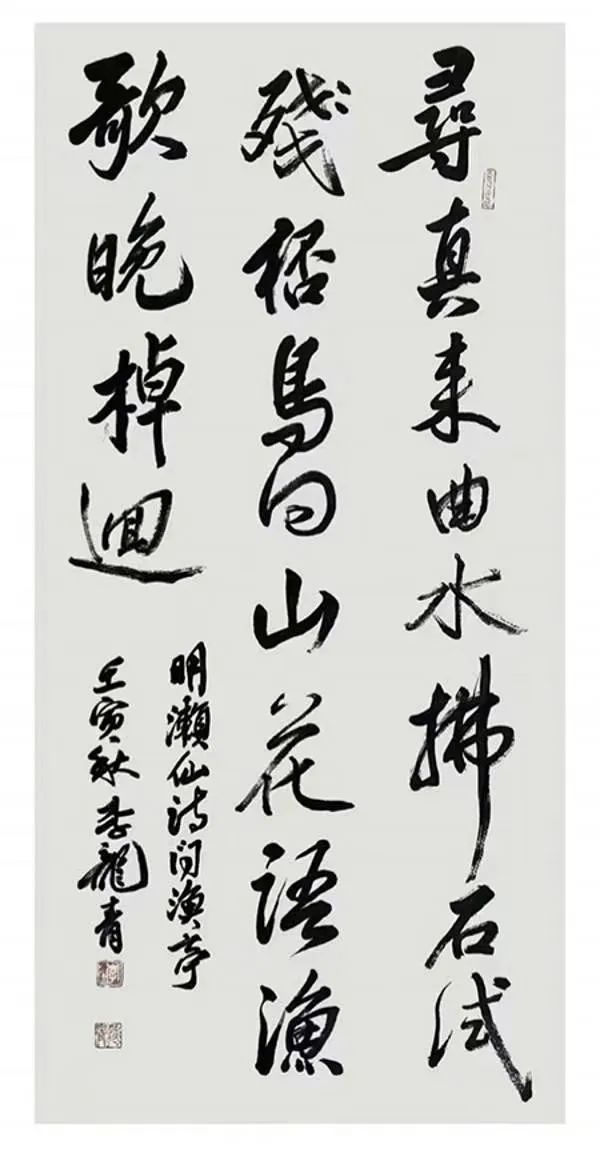 尋真来曲水拂石試
殘桮鳥向山花語漁
歌晚棹迴
明瀨仙詩问漁亭
壬寅秋李龍青